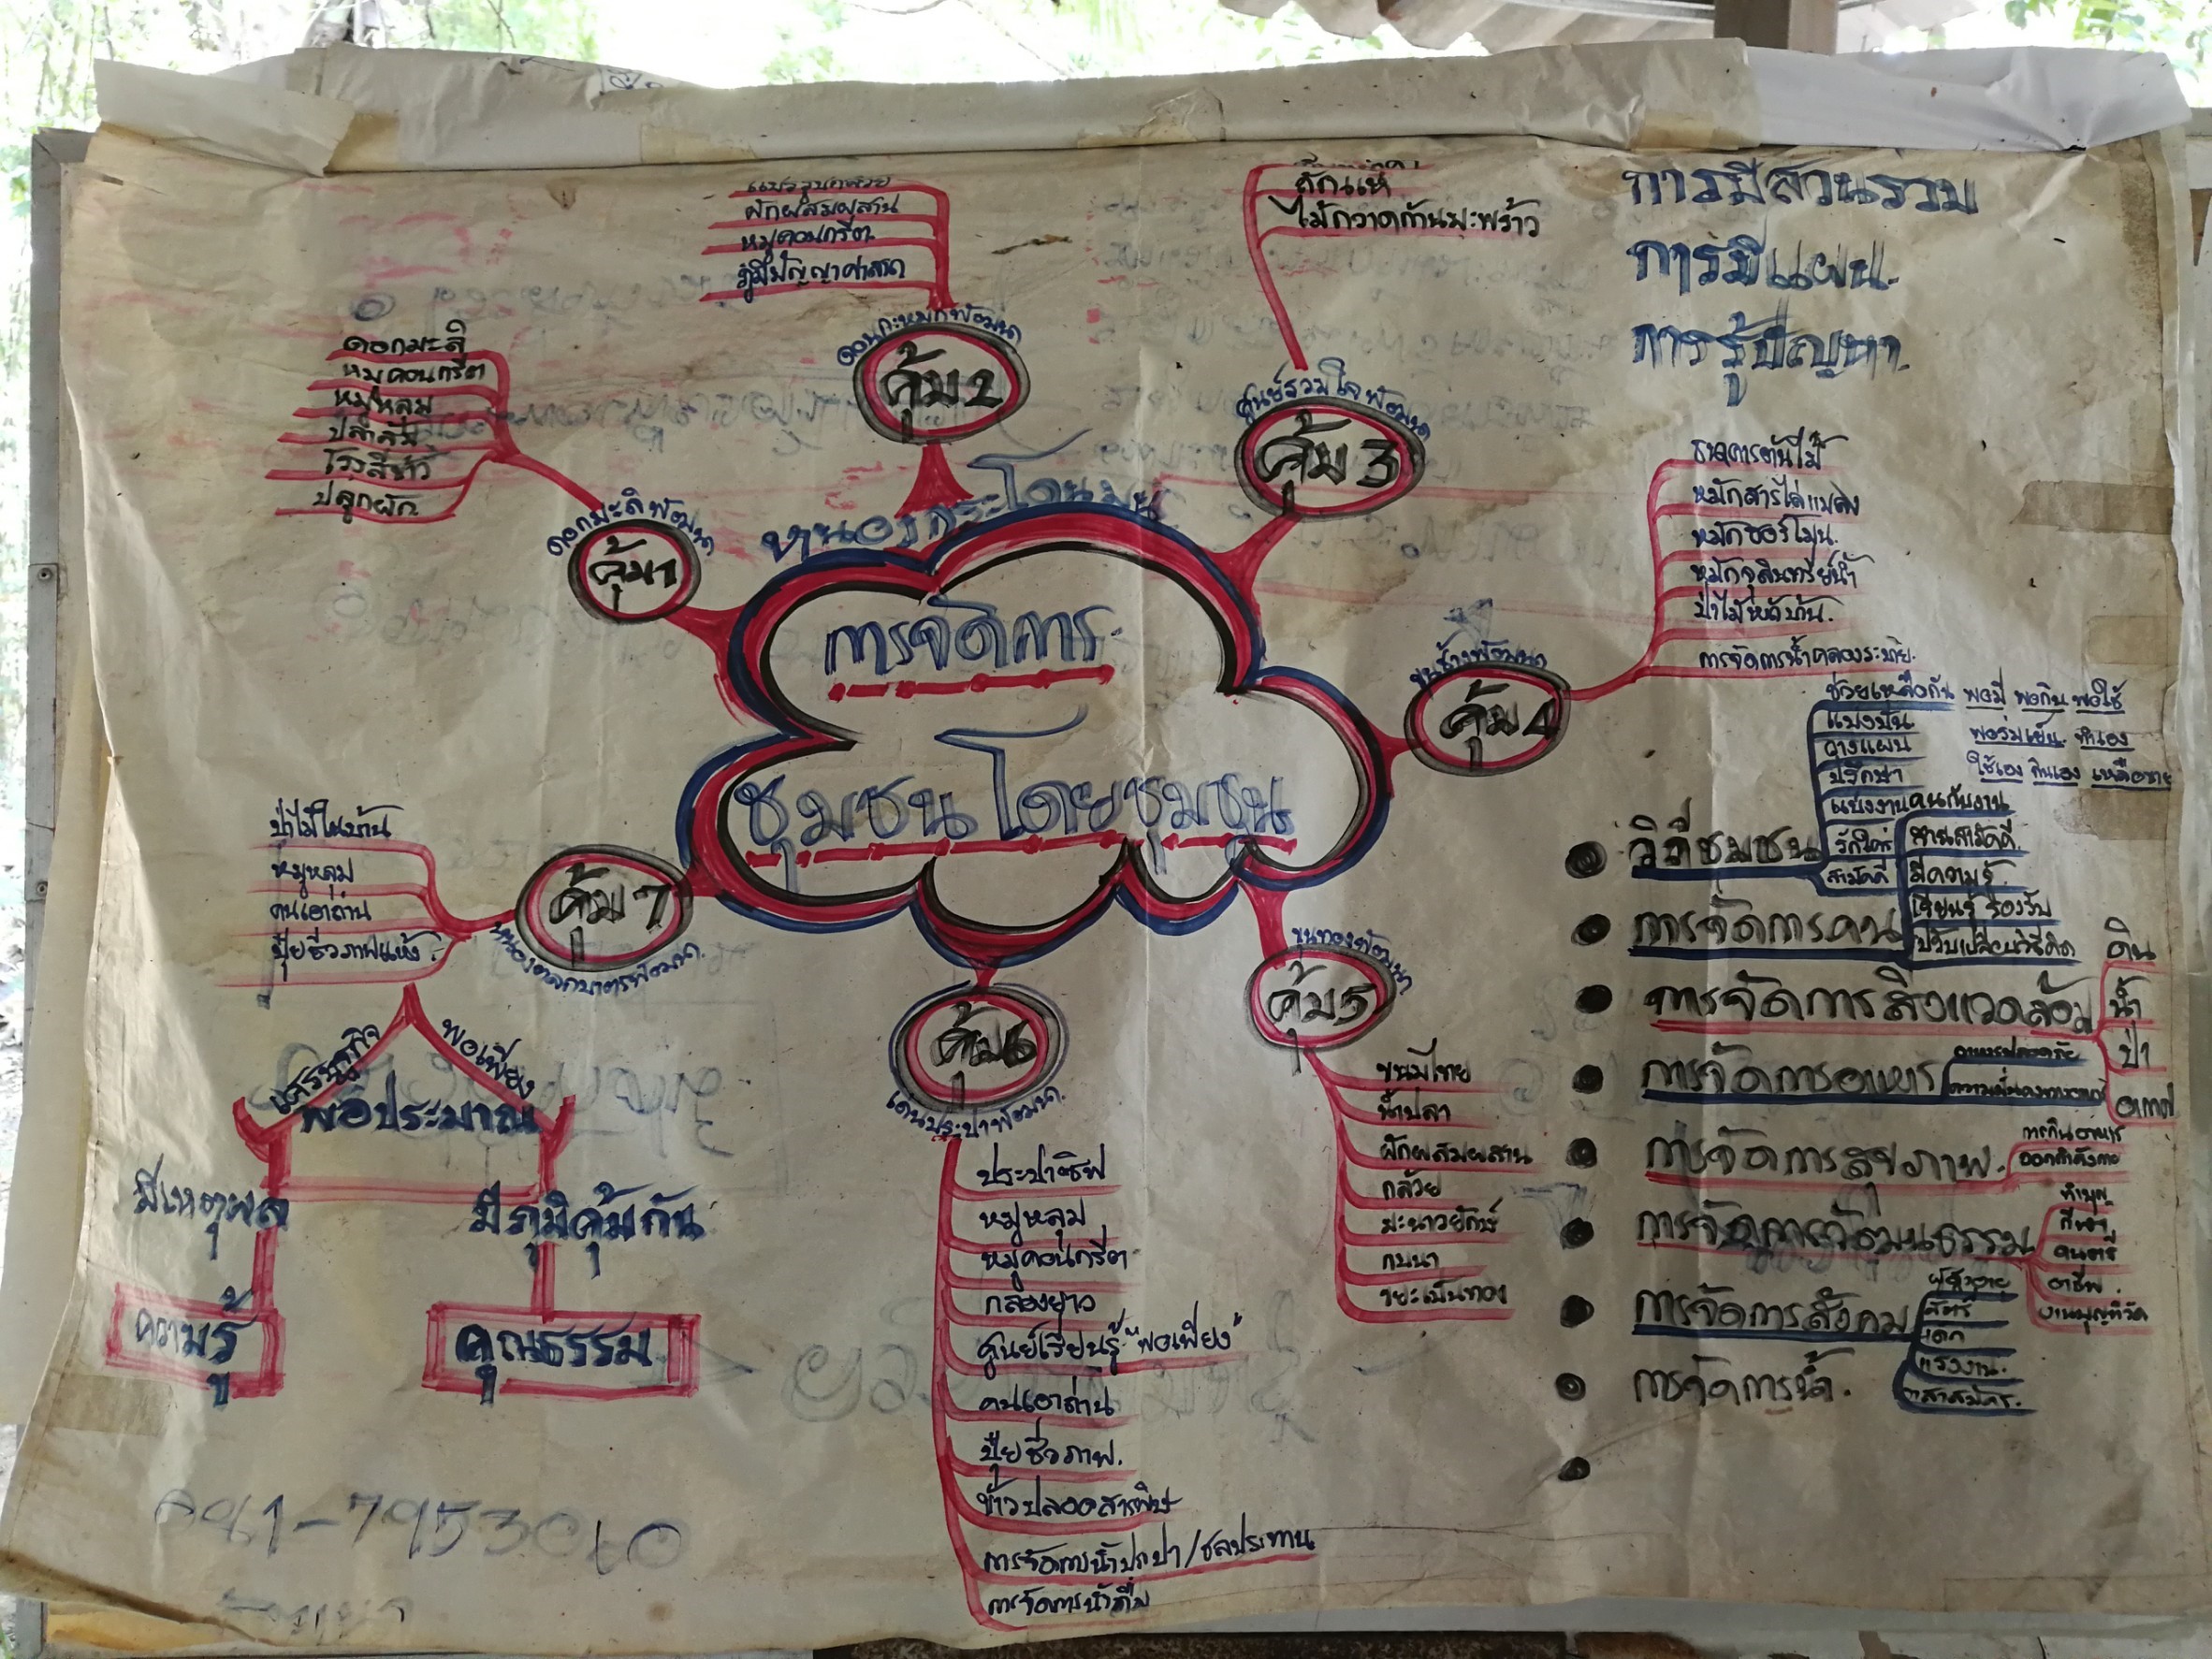 แปรรูปกล้วย
ผักผสมผสาน
หมูคอนกรีต
ภูมิปัญญาศาสตร์
ดอนกะหมกพัฒนา
คุ้ม 2
ถักแห
ไม้กวาดก้านมะพร้าว
ศูนย์รวมใจพัฒนา
คุ้ม 3
การมีส่วนร่วม
การมีแผน
การรู้ปัญหา
ดอกมะลิ
หมูคอนกรีต
หมูหลุม
ปลาส้ม
โรงสีข้าว
ปลูกผัก
ดอกมะลิพัฒนา
คุ้ม 1
หนองกระโดนมน
การจัดการ
ชุมชนโดยชุมชน
ธนาคารต้นไม้
หมักสารไล่แมลง
หมักฮอร์โมน
หมักจุลินทรีย์น้ำ
ป่าไม้หลังบ้าน
การจัดการน้ำคลองระบาย
ขุนช้างพัฒนา
คุ้ม 4
ช่วยเหลือกัน พอมี พอกิน พอใช้
แบ่งปัน
พอร่มเย็น ทำเอง
วางแผน
ปรึกษา
ใช้เอง กินเอง เหลือขาย
แบ่งงาน
รักใคร่
สามัคคี
วิถีชุมชน
คนกับงาน
สานสามัคคี
มีความรู้
เรียนรู้ รองรับ
ปรับเปลี่ยนวิธีคิด
การจัดการคน
การจัดการสิ่งแวดล้อม
ดิน
น้ำ
ป่า
อากาศ
การจัดการอาหาร
อาหารปลอดภัย
ความมั่นคงทางอาหาร
การจัดการสุขภาพ
การกินอาหาร
ออกกำลังกาย
การจัดการวัฒนธรรม
ทำบุญ
กีฬา
ดนตรี
อาชีพ
งานบุญที่วัด
การจัดการสังคม
ผู้สูงอายุ
สตรี
เด็ก
แรงงาน
อาสาสมัคร
การจัดการน้ำ
ป่าไม้ในบ้าน
หมูหลุม
คนเอาถ่าน
ปุ๋ยชีวภาพแห้ง
คุ้ม 7
หนองตลกบาตรพัฒนา
ขุนทองพัฒนา
คุ้ม 5
ขนมไทย
น้ำปลา
ผักผสมผสาน
กล้วย
มะนาวยักษ์
กบนา
ขยะเป็นทอง
คุ้ม 6
เด่นประปาพัฒนา
ประปาซิฟ
หมูหลุม
หมูคอนกรีต
กลองยาว
ศูนย์เรียนรู้ "พอเพียง"
คนเอาถ่าน
ปุ๋ยชีวภาพ
ข้าวปลอดสารพิษ
การจัดการน้ำประปา/ชลประทาน
การจัดการน้ำดื่ม
เศรษฐกิจ
พอเพียง
พอประมาณ
มีเหตุผล
มีภูมิคุ้มกัน
ความรู้
คุณธรรม
081-7953060